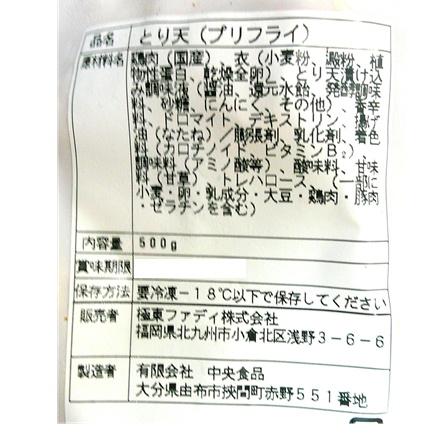 品名 とり天（プリフライ）
原材料名 鶏肉（国産）、衣（小麦粉、澱粉、植
物性蛋白、乾燥全卵）、とり天漬け込
み調味液（醤油、還元水飴、発酵調味
料、砂糖、にんにく、その他）、香辛
料、ドロマイト、デキストリン、揚げ
油（なたね）、膨張剤、乳化剤、着色
料（カロチノイド、ビタミンB₂）、
調味料（アミノ酸等）、酸味料、甘味
料（甘草）、トレハロース、（一部に
小麦・卵・乳成分・大豆・鶏肉・豚肉
・ゼラチンを含む）
内容量 500g
賞味期限
保存方法 要冷凍－18℃以下で保存してください
販売者 極東ファディ株式会社
福岡県北九州市小倉北区浅野3－6－6
製造者 有限会社 中央食品
大分県由布市挾間町赤野551番地